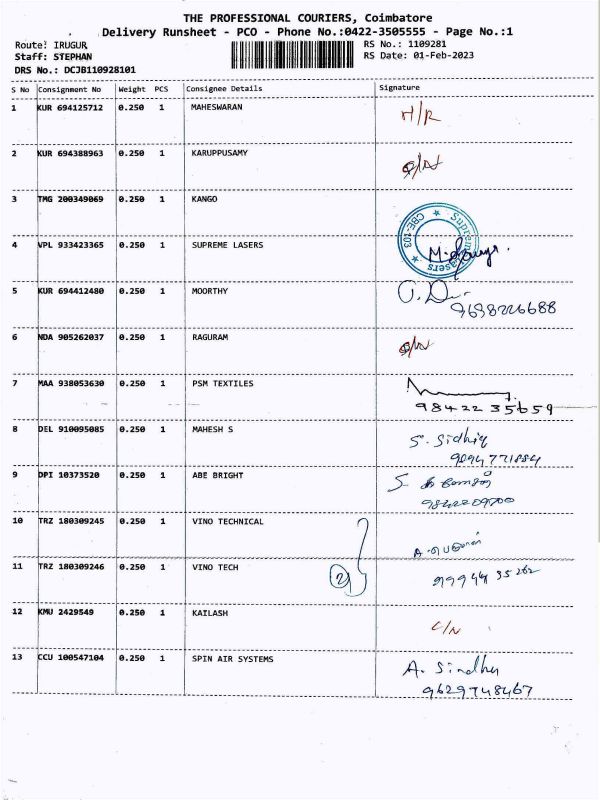 THE PROFESSIONAL COURIERS, Coimbatore
Delivery Runsheet - PCO - Phone No.:0422-3505555 - Page No.:1
Route: IRUGUR RS No.: 1109281
Staff: STEPHAN RS Date: 01-Feb-2023
DRS No.: DCJB110928101
S No Consignment No Weight PCS Consignee Details Signature
1 KUR 694125712 0.250 1 MAHESWARAN
2 KUR 694388963 0.250 1 KARUPPUSAMY
3 TMG 200349069 0.250 1 KANGO
4 VPL 933423365 0.250 1 SUPREME LASERS
Supreme Lasers
CBE-103
5 KUR 694412480 0.250 1 MOORTHY
9698226688
6 NDA 905262037 0.250 1 RAGURAM
7 MAA 938053630 0.250 1 PSM TEXTILES
98422 35659
8 DEL 910095085 0.250 1 MAHESH S S. Sidhiq
9094771884
9 DPI 10373520 0.250 1 ABE BRIGHT
10 TRZ 180309245 0.250 1 VINO TECHNICAL
11 TRZ 180309246 0.250 1 VINO TECH 2
12 KMU 2429549 0.250 1 KAILASH C/N
13 CCU 100547104 0.250 1 SPIN AIR SYSTEMS A. Sindhu
9629748467